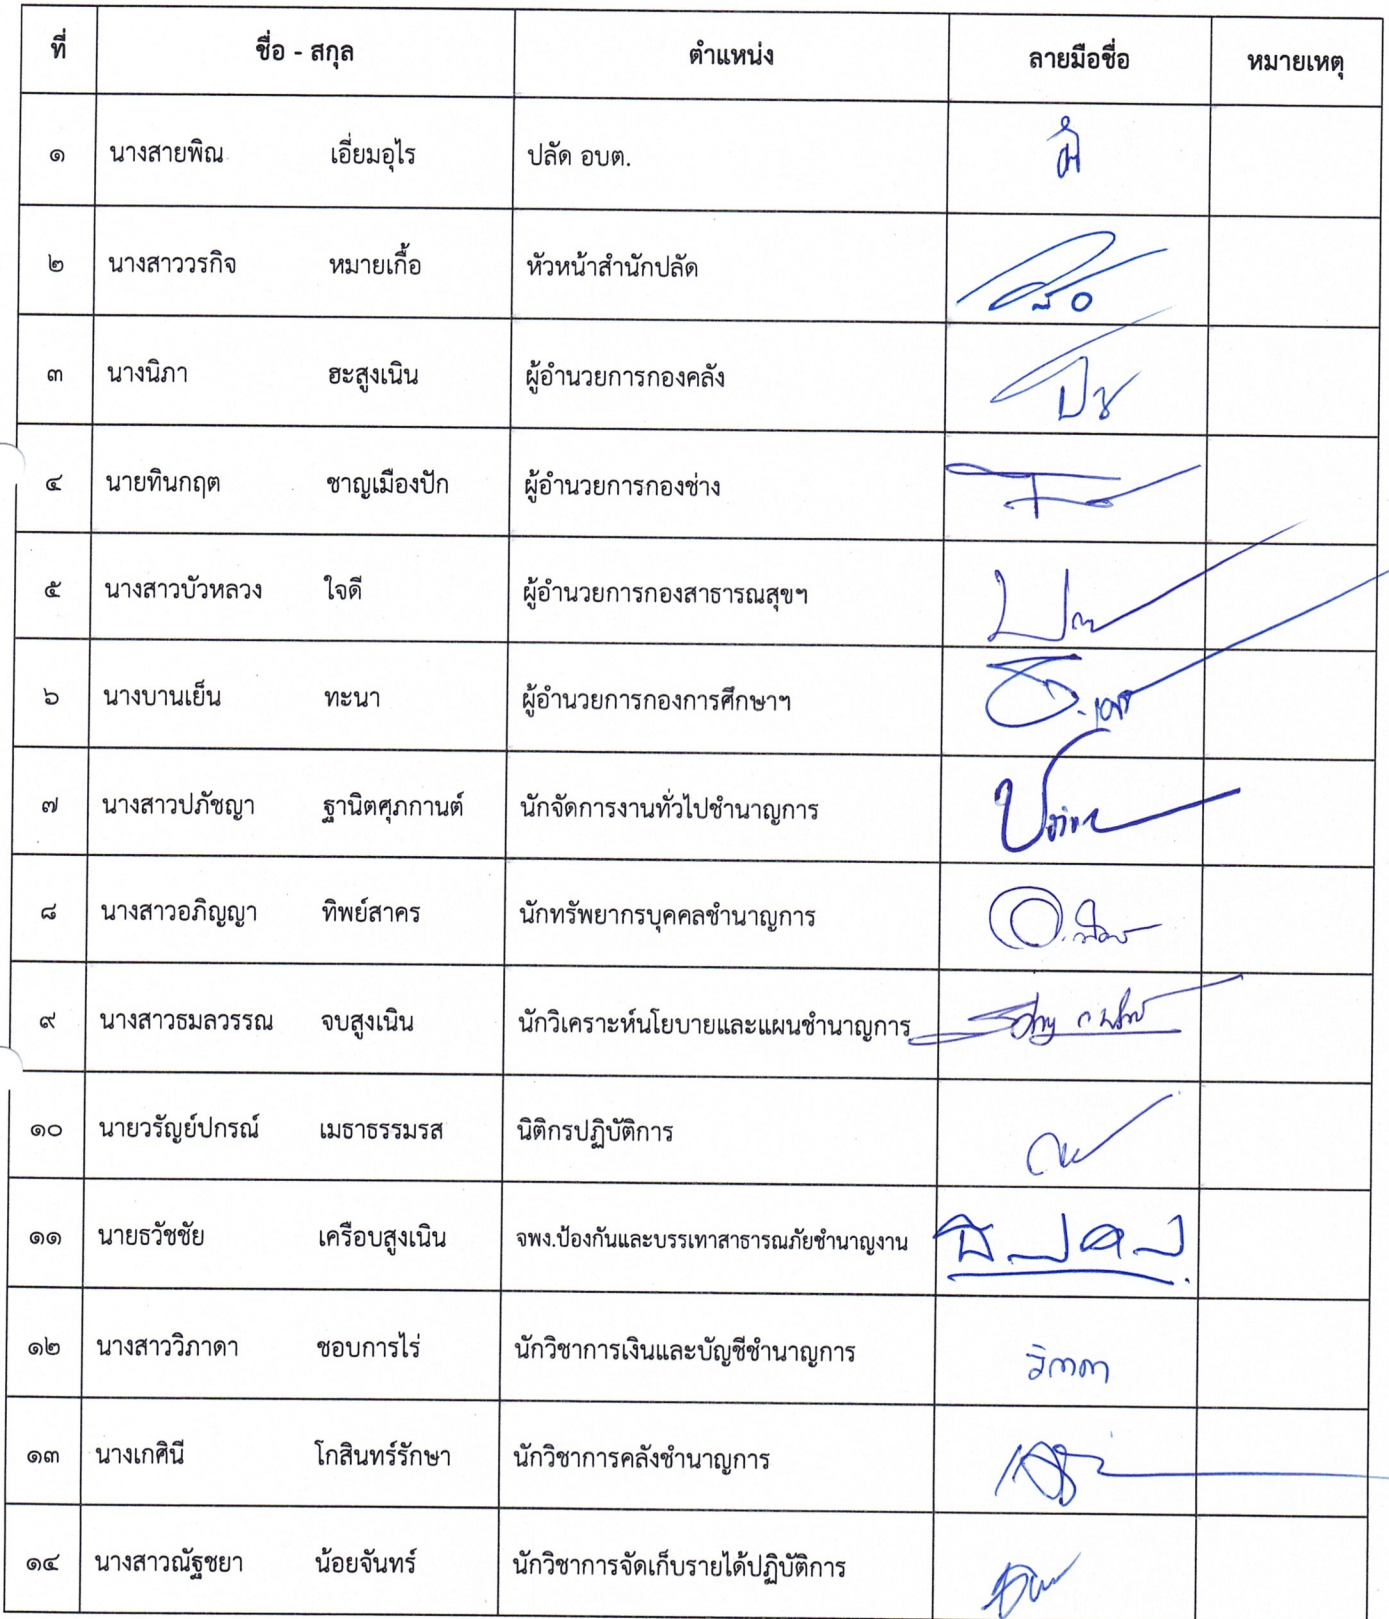 ที่ ชื่อ - สกุล ตำแหน่ง ลายมือชื่อ หมายเหตุ
๑ นางสายพิณ เอี่ยมอุไร ปลัด อบต.
๒ นางสาววรกิจ หมายเกื้อ หัวหน้าสำนักปลัด
๓ นางนิภา ฮะสูงเนิน ผู้อำนวยการกองคลัง
๔ นายทินกฤต ชาญเมืองปัก ผู้อำนวยการกองช่าง
๕ นางสาวบัวหลวง ใจดี ผู้อำนวยการกองสาธารณสุขฯ
๖ นางบานเย็น ทะนา ผู้อำนวยการกองการศึกษาฯ
๗ นางสาวปภัชญา ฐานิตศุภกานต์ นักจัดการงานทั่วไปชำนาญการ
๘ นางสาวอภิญญา ทิพย์สาคร นักทรัพยากรบุคคลชำนาญการ
๙ นางสาวธมลวรรณ จบสูงเนิน นักวิเคราะห์นโยบายและแผนชำนาญการ
๑๐ นายวรัญย์ปกรณ์ เมธาธรรมรส นิติกรปฏิบัติการ
๑๑ นายธวัชชัย เครือบสูงเนิน จพง.ป้องกันและบรรเทาสาธารณภัยชำนาญงาน
๑๒ นางสาววิภาดา ชอบการไร่ นักวิชาการเงินและบัญชีชำนาญการ วิภาดา
๑๓ นางเกศินี โกสินทร์รักษา นักวิชาการคลังชำนาญการ
๑๔ นางสาวณัฐชยา น้อยจันทร์ นักวิชาการจัดเก็บรายได้ปฏิบัติการ